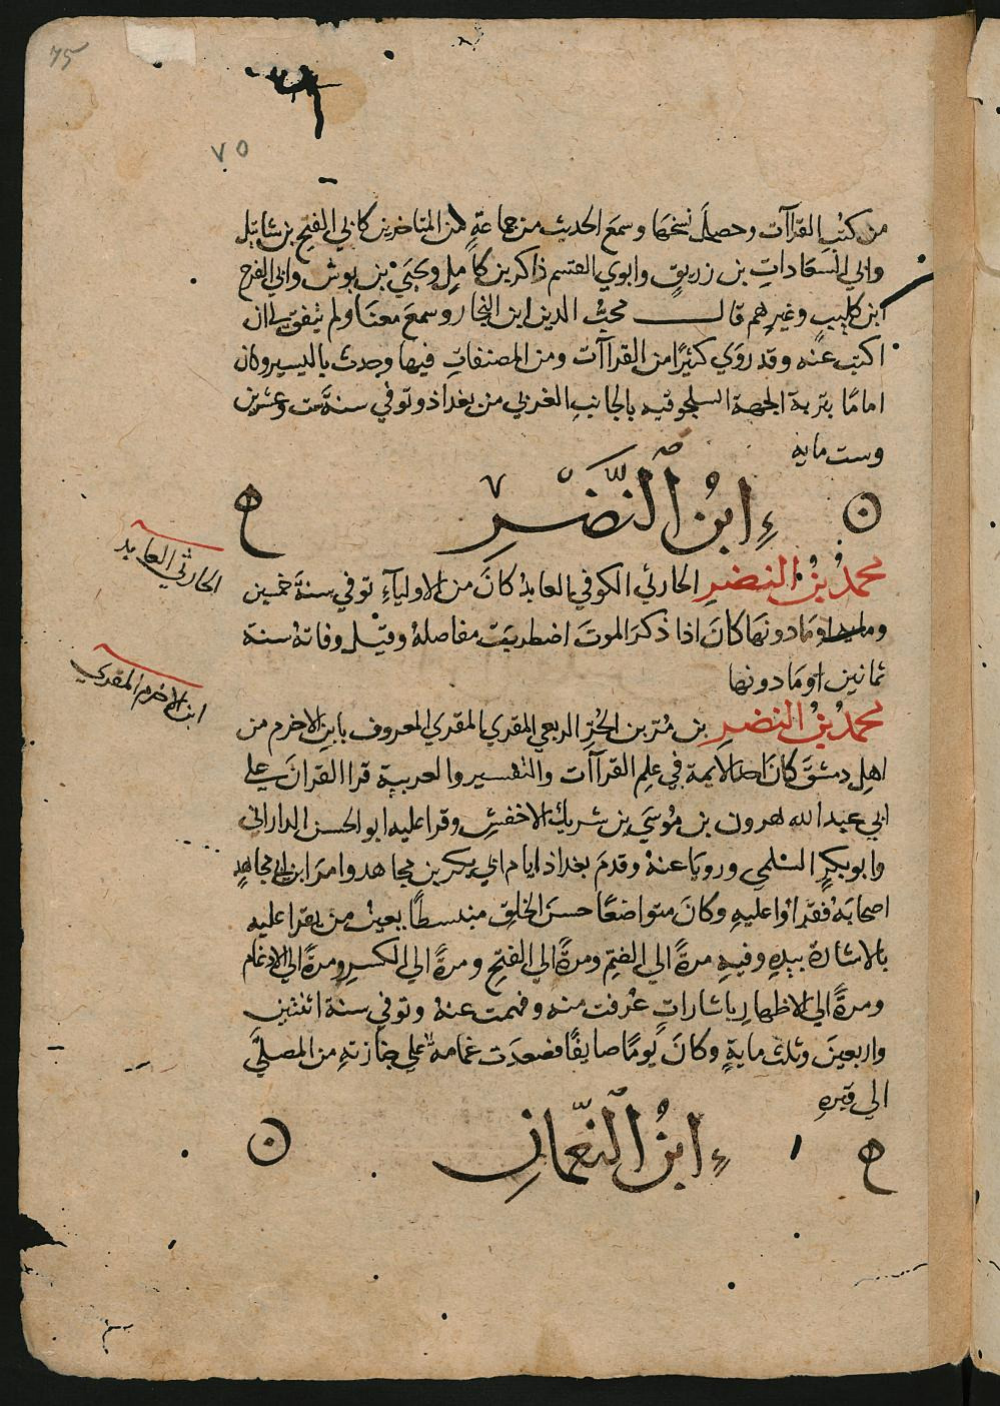 75
٧٥
من كتب القراآت وحصل نسخها وسمع الحديث من جماعة من المتاخرين كابي الفتح بن شاتيل
وابي السعادات بن زريق وابوي القسم ذاكر بن كامل ويحيى بن بوش وابي الفرج
ابن كليب وغيرهم قال محب الدين ابن النجار وسمع معنا ولم يتفق لي ان
اكتب عنه وقد روي كثيرا من القراآت ومن المصنفات فيها وحدث باليسير وكان
اماما بتربة الجهة السلجوقيه بالجانب الغربي من بغداذ وتوفي سنة ست وعشرين
وست مايه
ابن النضر
محمد بن النضر الحارثي الكوفي العابد كان من الاولياء توفي سنة خمسين
وماية او ما دونها كان اذا ذكر الموت اضطربت مفاصله وقيل وفاته سنة
ثمانين او ما دونها
محمد بن النضر بن مر بن الحر الربعي المقري المعروف بابن الاخرم من
اهل دمشق كان احد الايمة في علم القراآت والتفسير والعربية قرا القران على
ابي عبد الله هرون بن موسي بن شريك الاخفش وقرا عليه ابو الحسن الداراني
وابو بكر السلمي ورويا عنه وقدم بغداذ ايام ابي بكر بن مجاهد وامر ابن مجاهد
اصحابه فقراوا عليه وكان متواضعا حسن الخلق منبسطا يعين من يقرا عليه
بالاشارة بيده وفيه مرة الي الضم ومرة الي الفتح ومرة الي الكسر ومرة الي الادغام
ومرة الي الاظهار باشارات عرفت منه وفهمت عنه وتوفي سنة اثنتين
واربعين وثلث ماية وكان يوما صايفا فصعدت غمامة علي جنازته من المصلي
الي قبره
ابن النعمان
الحارثي العابد
ابن الاخرم المقري